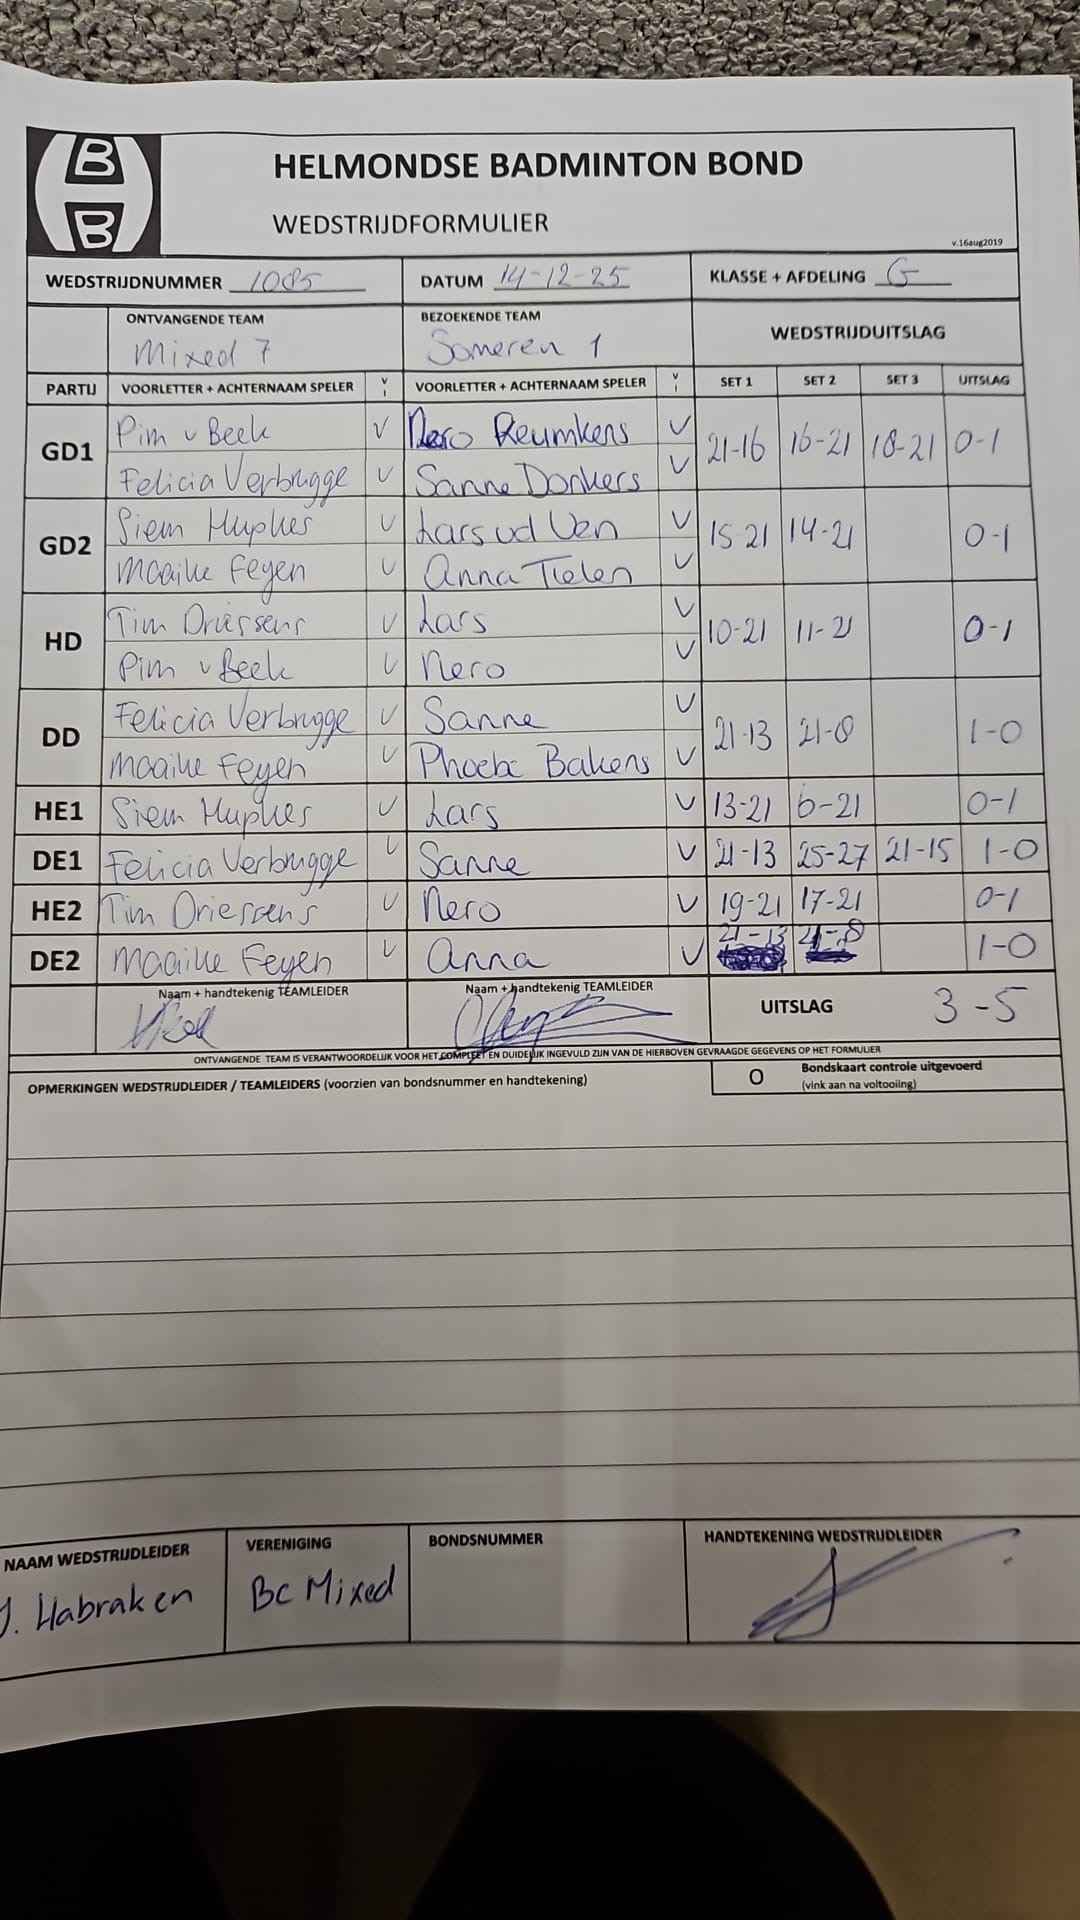 B
B
HELMONDSE BADMINTON BOND
WEDSTRIJDFORMULIER
v.16aug2019
WEDSTRIJDNUMMER 1085 DATUM 14-12-25 KLASSE + AFDELING G
ONTVANGENDE TEAM BEZOEKENDE TEAM WEDSTRIJDUITSLAG
Mixed 7 Someren 1
PARTIJ VOORLETTER + ACHTERNAAM SPELER V I VOORLETTER + ACHTERNAAM SPELER V I SET 1 SET 2 SET 3 UITSLAG
GD1 Pim v Beek V Nero Reumkens V 21-16 16-21 18-21 0-1
Felicia Verbrugge V Sanne Donkers V
GD2 Siem Huphes V Lars vd Ven V 15-21 14-21 0-1
Maaike Feyen V Anna Tielen V
HD Tim Driessens V Lars V 10-21 11-21 0-1
Pim v Beek V Nero V
DD Felicia Verbrugge V Sanne V 21-13 21-8 1-0
Maaike Feyen V Phoebe Bakens V
HE1 Siem Huphes V Lars V 13-21 6-21 0-1
DE1 Felicia Verbrugge V Sanne V 21-13 25-27 21-15 1-0
HE2 Tim Driessens V Nero V 19-21 17-21 0-1
DE2 Maaike Feyen V Anna V 21-13 21-8 1-0
Naam + handtekenig TEAMLEIDER Naam + handtekenig TEAMLEIDER UITSLAG 3-5
ONTVANGENDE TEAM IS VERANTWOORDELIJK VOOR HET COMPLEET EN DUIDELIJK INGEVULD ZIJN VAN DE HIERBOVEN GEVRAAGDE GEGEVENS OP HET FORMULIER
OPMERKINGEN WEDSTRIJDLEIDER / TEAMLEIDERS (voorzien van bondsnummer en handtekening) O Bondskaart controle uitgevoerd
(vink aan na voltooiing)
NAAM WEDSTRIJDLEIDER VERENIGING BONDSNUMMER HANDTEKENING WEDSTRIJDLEIDER
J. Habraken BC Mixed